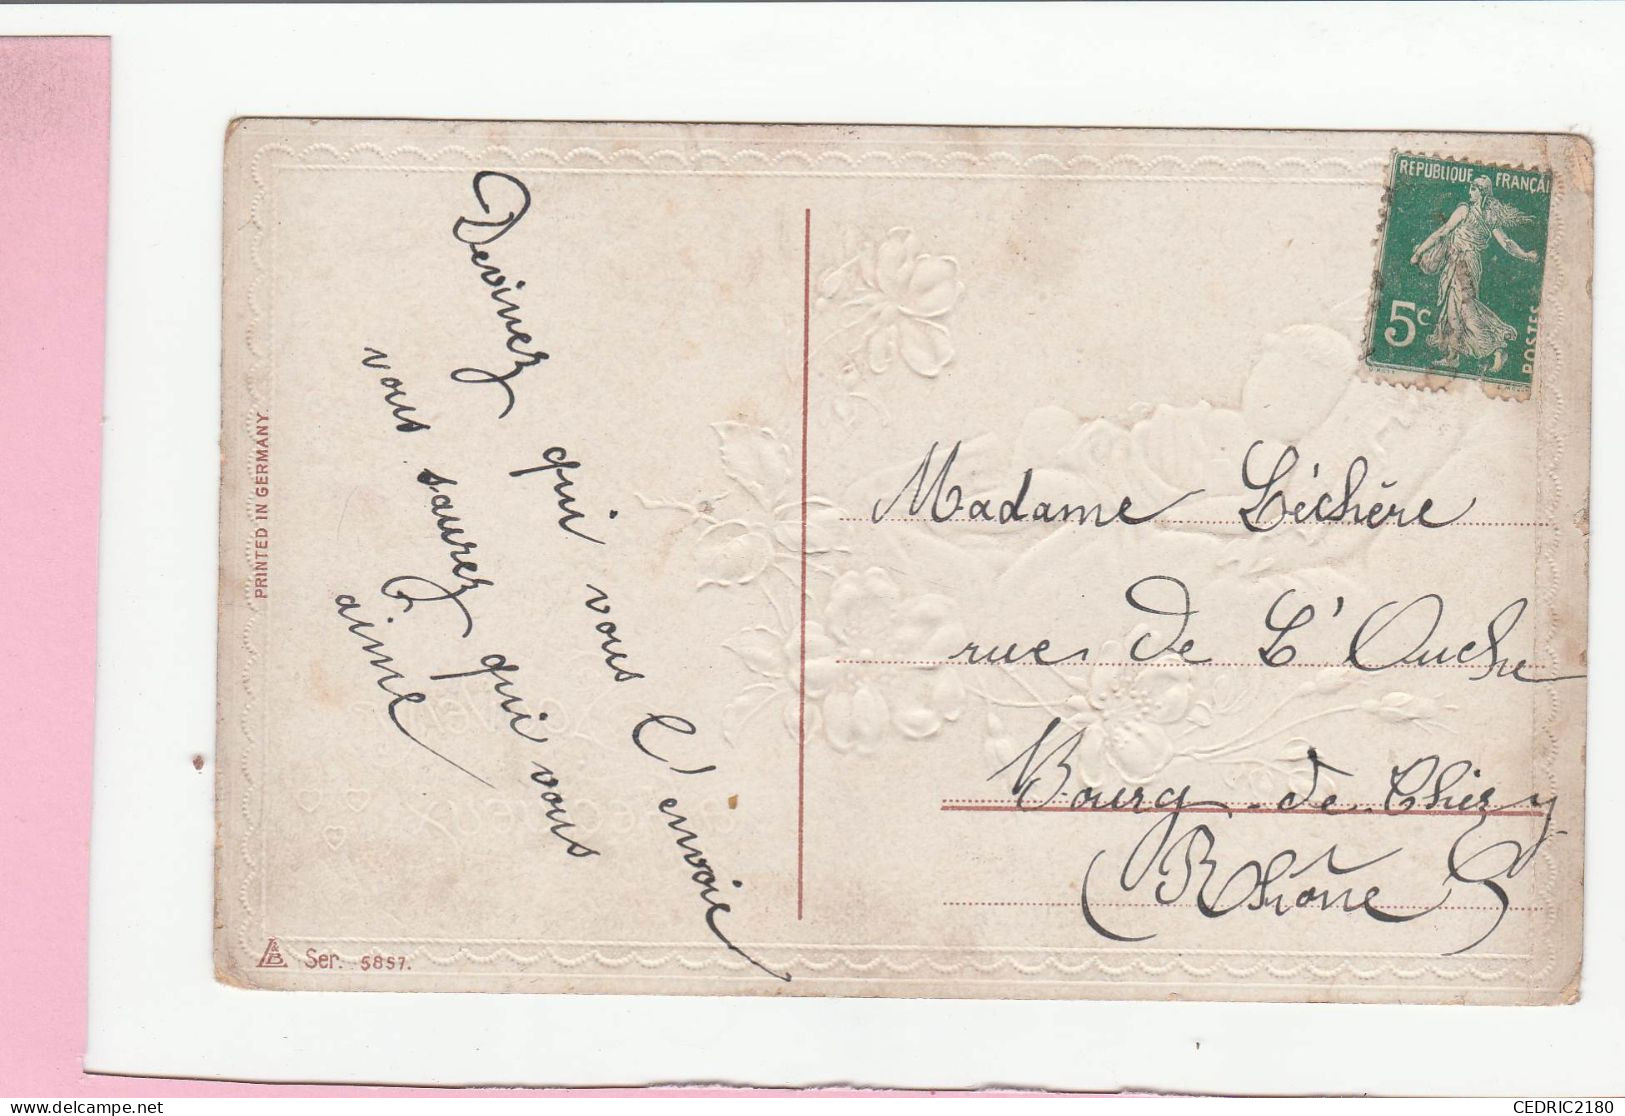 Devinez qui vous l'envoie
vous saurez qui vous
aime
REPUBLIQUE FRANÇAI
5c
POSTES
Madame Léchère
rue de L'Ouche
Bourg-de-Thizy
(Rhône)
PRINTED IN GERMANY.
L&B Ser. 5857.
CEDRIC2180